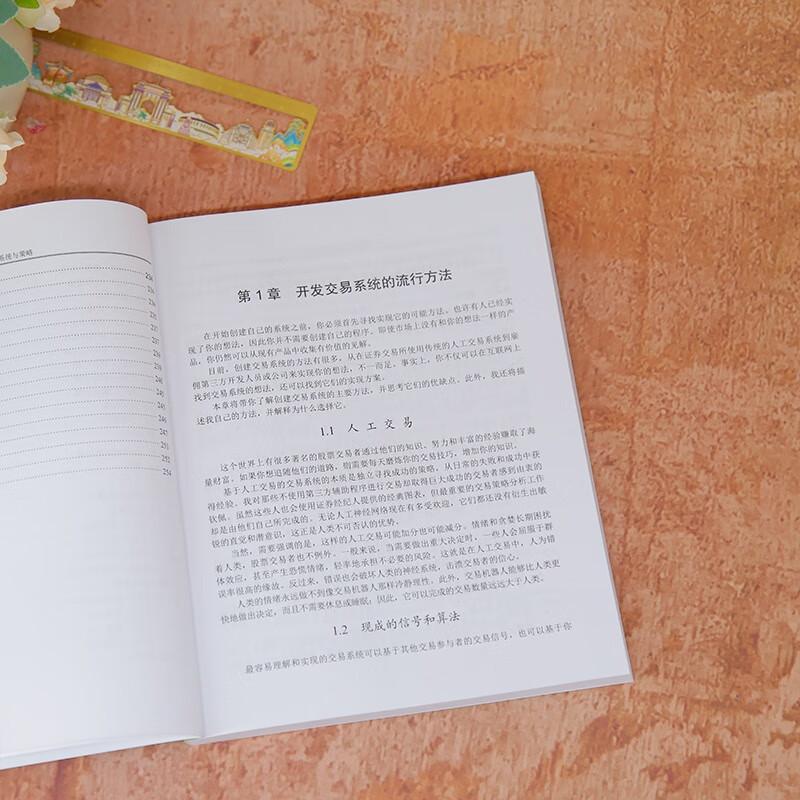 系统与策略
234
236
236
237
237
238
239
240
245
246
247
251
252
254
第1章 开发交易系统的流行方法
在开始创建自己的系统之前，你必须首先寻找实现它的可能方法。也许有人已经实
现了你的想法，因此你并不需要创建自己的程序。即使市场上没有和你的想法一样的产
品，你仍然可以从现有产品中收集有价值的见解。
目前，创建交易系统的方法有很多，从在证券交易所使用传统的人工交易系统到雇
佣第三方开发人员或公司来实现你的想法，不一而足。事实上，你不仅可以在互联网上
找到交易系统的想法，还可以找到它们的实现方案。
本章将带你了解创建交易系统的主要方法，并思考它们的优缺点。此外，我还将描
述我自己的方法，并解释为什么选择它。
1.1 人工交易
这个世界上有很多著名的股票交易者通过他们的知识、努力和丰富的经验赚取了海
量财富。如果你想追随他们的道路，则需要每天磨炼你的交易技巧，增加你的知识。
基于人工交易的交易系统的本质是独立寻找成功的策略，从日常的失败和成功中获
得经验。我对那些不使用第三方辅助程序进行交易却取得巨大成功的交易者感到由衷的
钦佩。虽然这些人也会使用证券经纪人提供的经典图表，但最重要的交易策略分析工作
却是由他们自己所完成的。无论人工神经网络现在有多受欢迎，它们都还没有衍生出敏
锐的直觉和潜意识，这正是人类不可否认的优势。
当然，需要强调的是，这样的人工交易可能加分也可能减分。情绪和贪婪长期困扰
着人类，股票交易者也不例外。一般来说，当需要做出重大决定时，一些人会屈服于群
体效应，甚至产生恐慌情绪，轻率地承担不必要的风险。这就是在人工交易中，人为错
误率很高的缘故。反过来，错误也会破坏人类的神经系统，击溃交易者的信心。
人类的情绪永远做不到像交易机器人那样冷静理性，此外，交易机器人能够比人类更
快地做出决定，而且不需要休息或睡眠；因此，它可以完成的交易数量远远大于人类。
1.2 现成的信号和算法
最容易理解和实现的交易系统可以基于其他交易参与者的交易信号，也可以基于你